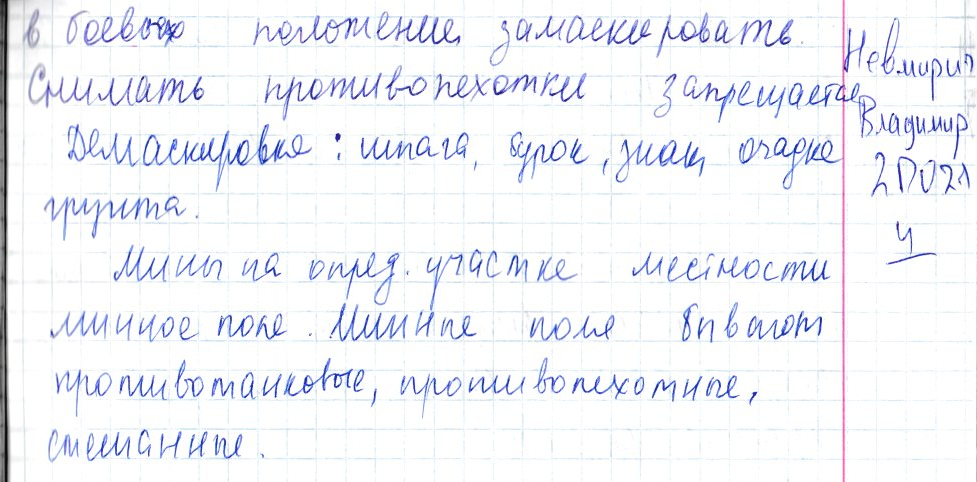 в боевое положение, замаскировать.
Снимать противопехотки запрещается
Демаскировка: шпага, бурок, знак, осадка
грунта.
Мины на опред. участке местности
минное поле. Минные поля бывают
противотанковые, противопехотные,
смешанные.
Невмирич
Владимир
2D021
4